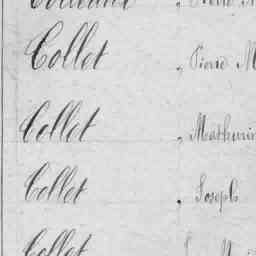 Collet, Pierre M
Collet, Mathurin
Collet, Joseph
Collet